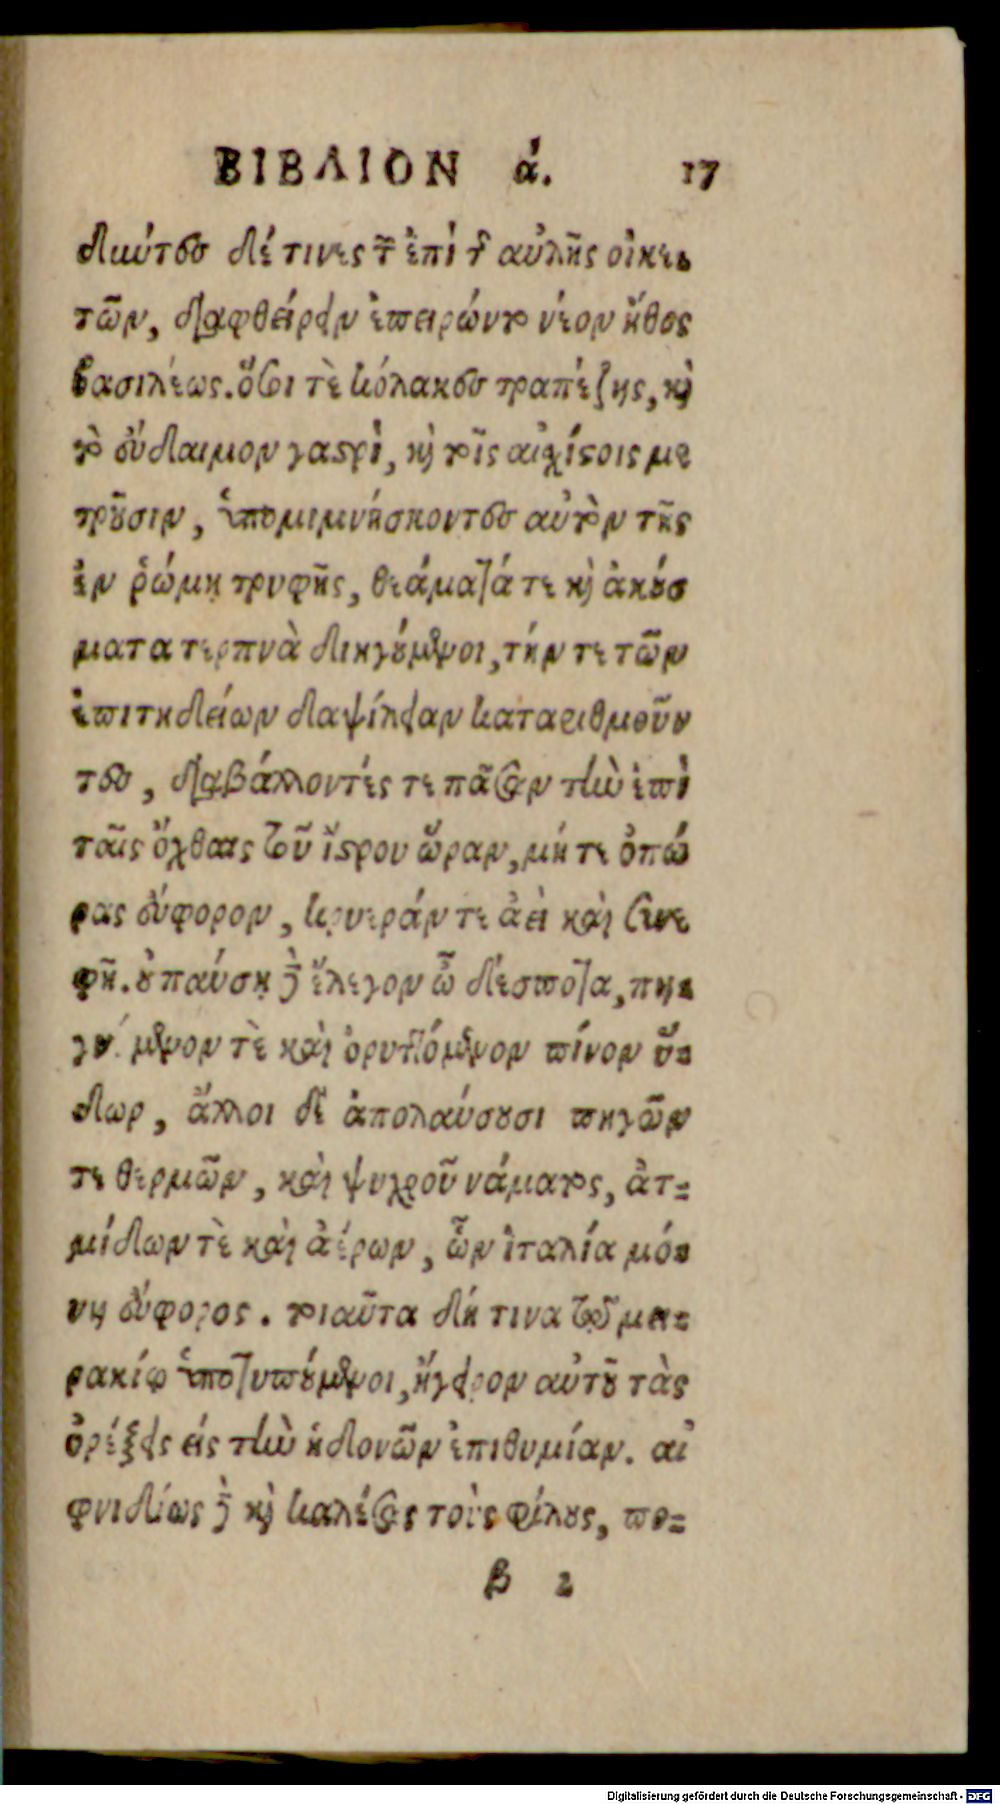 ΒΙΒΛΙΟΝ ά. 17
δύντες δέ τινες τῶν ἐπὶ τῆς αὐλῆς οἰκε-
τῶν, διαφθείρειν ἐπειρῶντο νέον ἦθος
βασιλέως. ὅσοι τὲ κόλακες τραπέζης, καὶ
τὸ εὔδαιμον γαστρὶ, καὶ τοῖς αἰχίστοις με
τροῦσιν, ὑπομιμνήσκοντες αὐτὸν τῆς
ἐν ῥώμῃ τρυφῆς, θεάματά τε καὶ ἀκούσ
ματα τερπνὰ διηγούμενοι, τήν τε τῶν
ἐπιτηδείων δαψίλειαν καταριθμοῦν
τες, διαβάλλοντές τε πᾶσαν τὴν ἐπὶ
ταῖς ὄχθαις τοῦ ἴστρου ὥραν, μήτε ὀπώ
ρας εὔφορον, κρυεράν τε ἀεὶ καὶ συνε
φῆ. οὐ παύσῃ δὲ ἔλεγον ὦ δέσποτα, πηγ-
νύμενον τὲ καὶ ὀρυττόμενον πίνον ὕ-
δωρ, ἄλλοι δὲ ἀπολαύσουσι πηγῶν
τε θερμῶν, καὶ ψυχροῦ νάματος, ἀτ-
μίδων τὲ καὶ ἀέρων, ὧν ἰταλία μό-
νη εὔφορος. τοιαῦτα δή τινα τῷ μει-
ρακίῳ ὑποτυπούμενοι, ἤγειρον αὐτοῦ τὰς
ὀρέξεις εἰς τὴν ἡδονῶν ἐπιθυμίαν. αἰ
φνιδίως δὲ καὶ καλέσας τοὺς φίλους, πο-
β 2
Digitalisierung gefördert durch die Deutsche Forschungsgemeinschaft - DFG